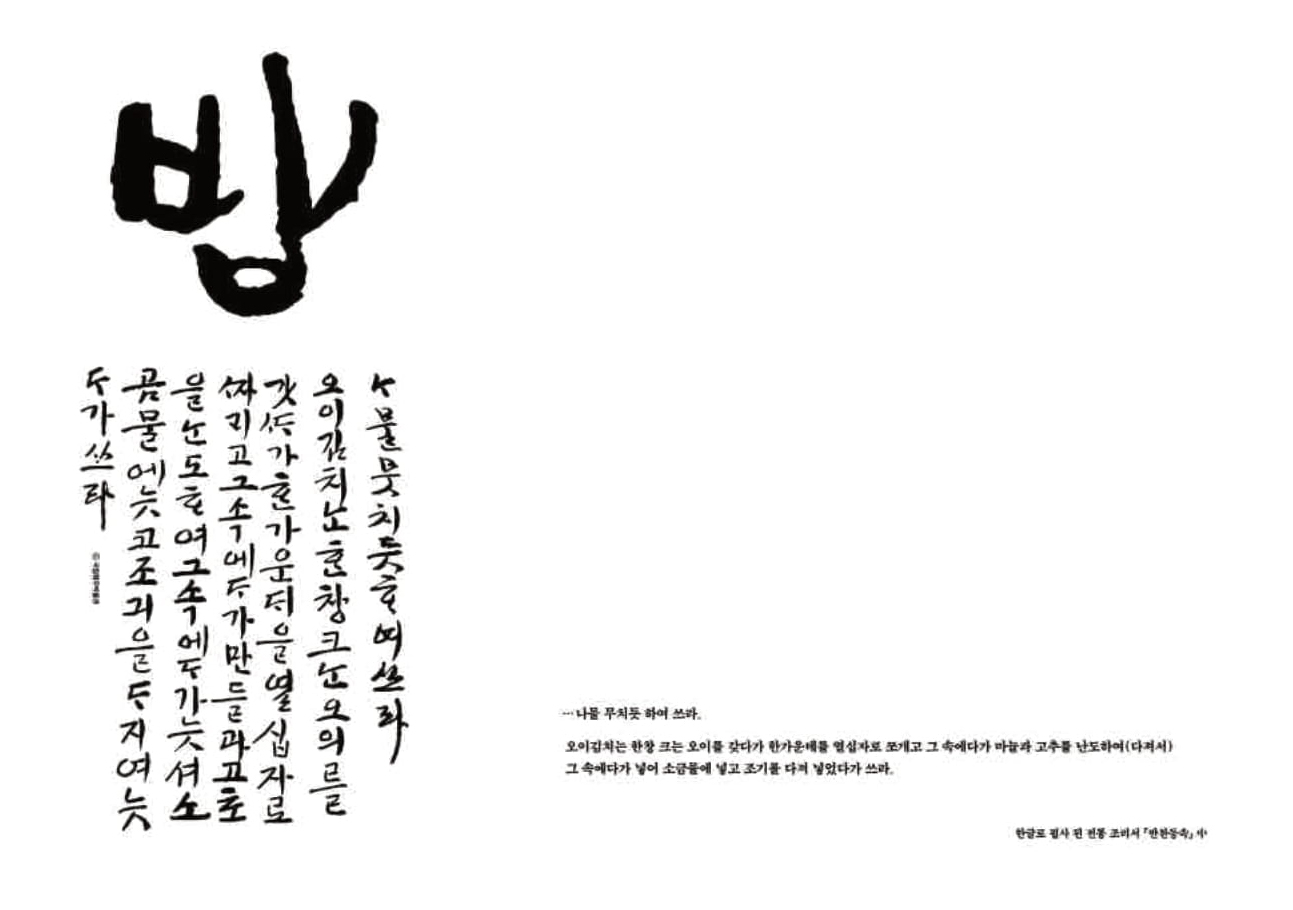 방
ᄂᆞ물뭇치듯ᄒᆞ여쓰라
오이김치ᄂᆞᆫᄒᆞᆫ창크ᄂᆞᆫ오의를
갓ᄯᆞ가ᄒᆞᆫ가운듸을열십자로
ᄶᅡ리고그속에ᄃᆞ가만들과고초
을ᄂᆞᆫ도ᄒᆞ여그속에ᄃᆞ가늣셔소
곰물에늣코조긔을ᄃᆞ지여늣
ᄃᆞ가쓰라
… 나물 무치듯 하여 쓰라.
오이김치는 한창 크는 오이를 갖다가 한가운데를 열십자로 쪼개고 그 속에다가 마늘과 고추를 난도하여(다져서)
그 속에다가 넣어 소금물에 넣고 조기를 다져 넣었다가 쓰라.
한글로 필사 된 전통 조리서 『반찬등속』 中